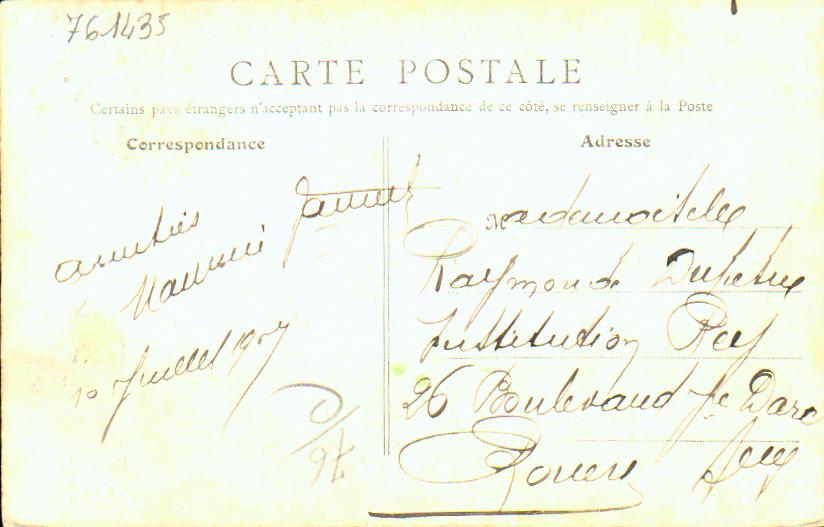 761435
CARTE POSTALE
Certains pays étrangers n'acceptant pas la correspondance de ce côté, se renseigner à la Poste
Correspondance
amitiés
10 Juillet 1907
Adresse
Mademoiselle
Raymonde
Institution Rey
26 Boulevard Je Darc
Rouen